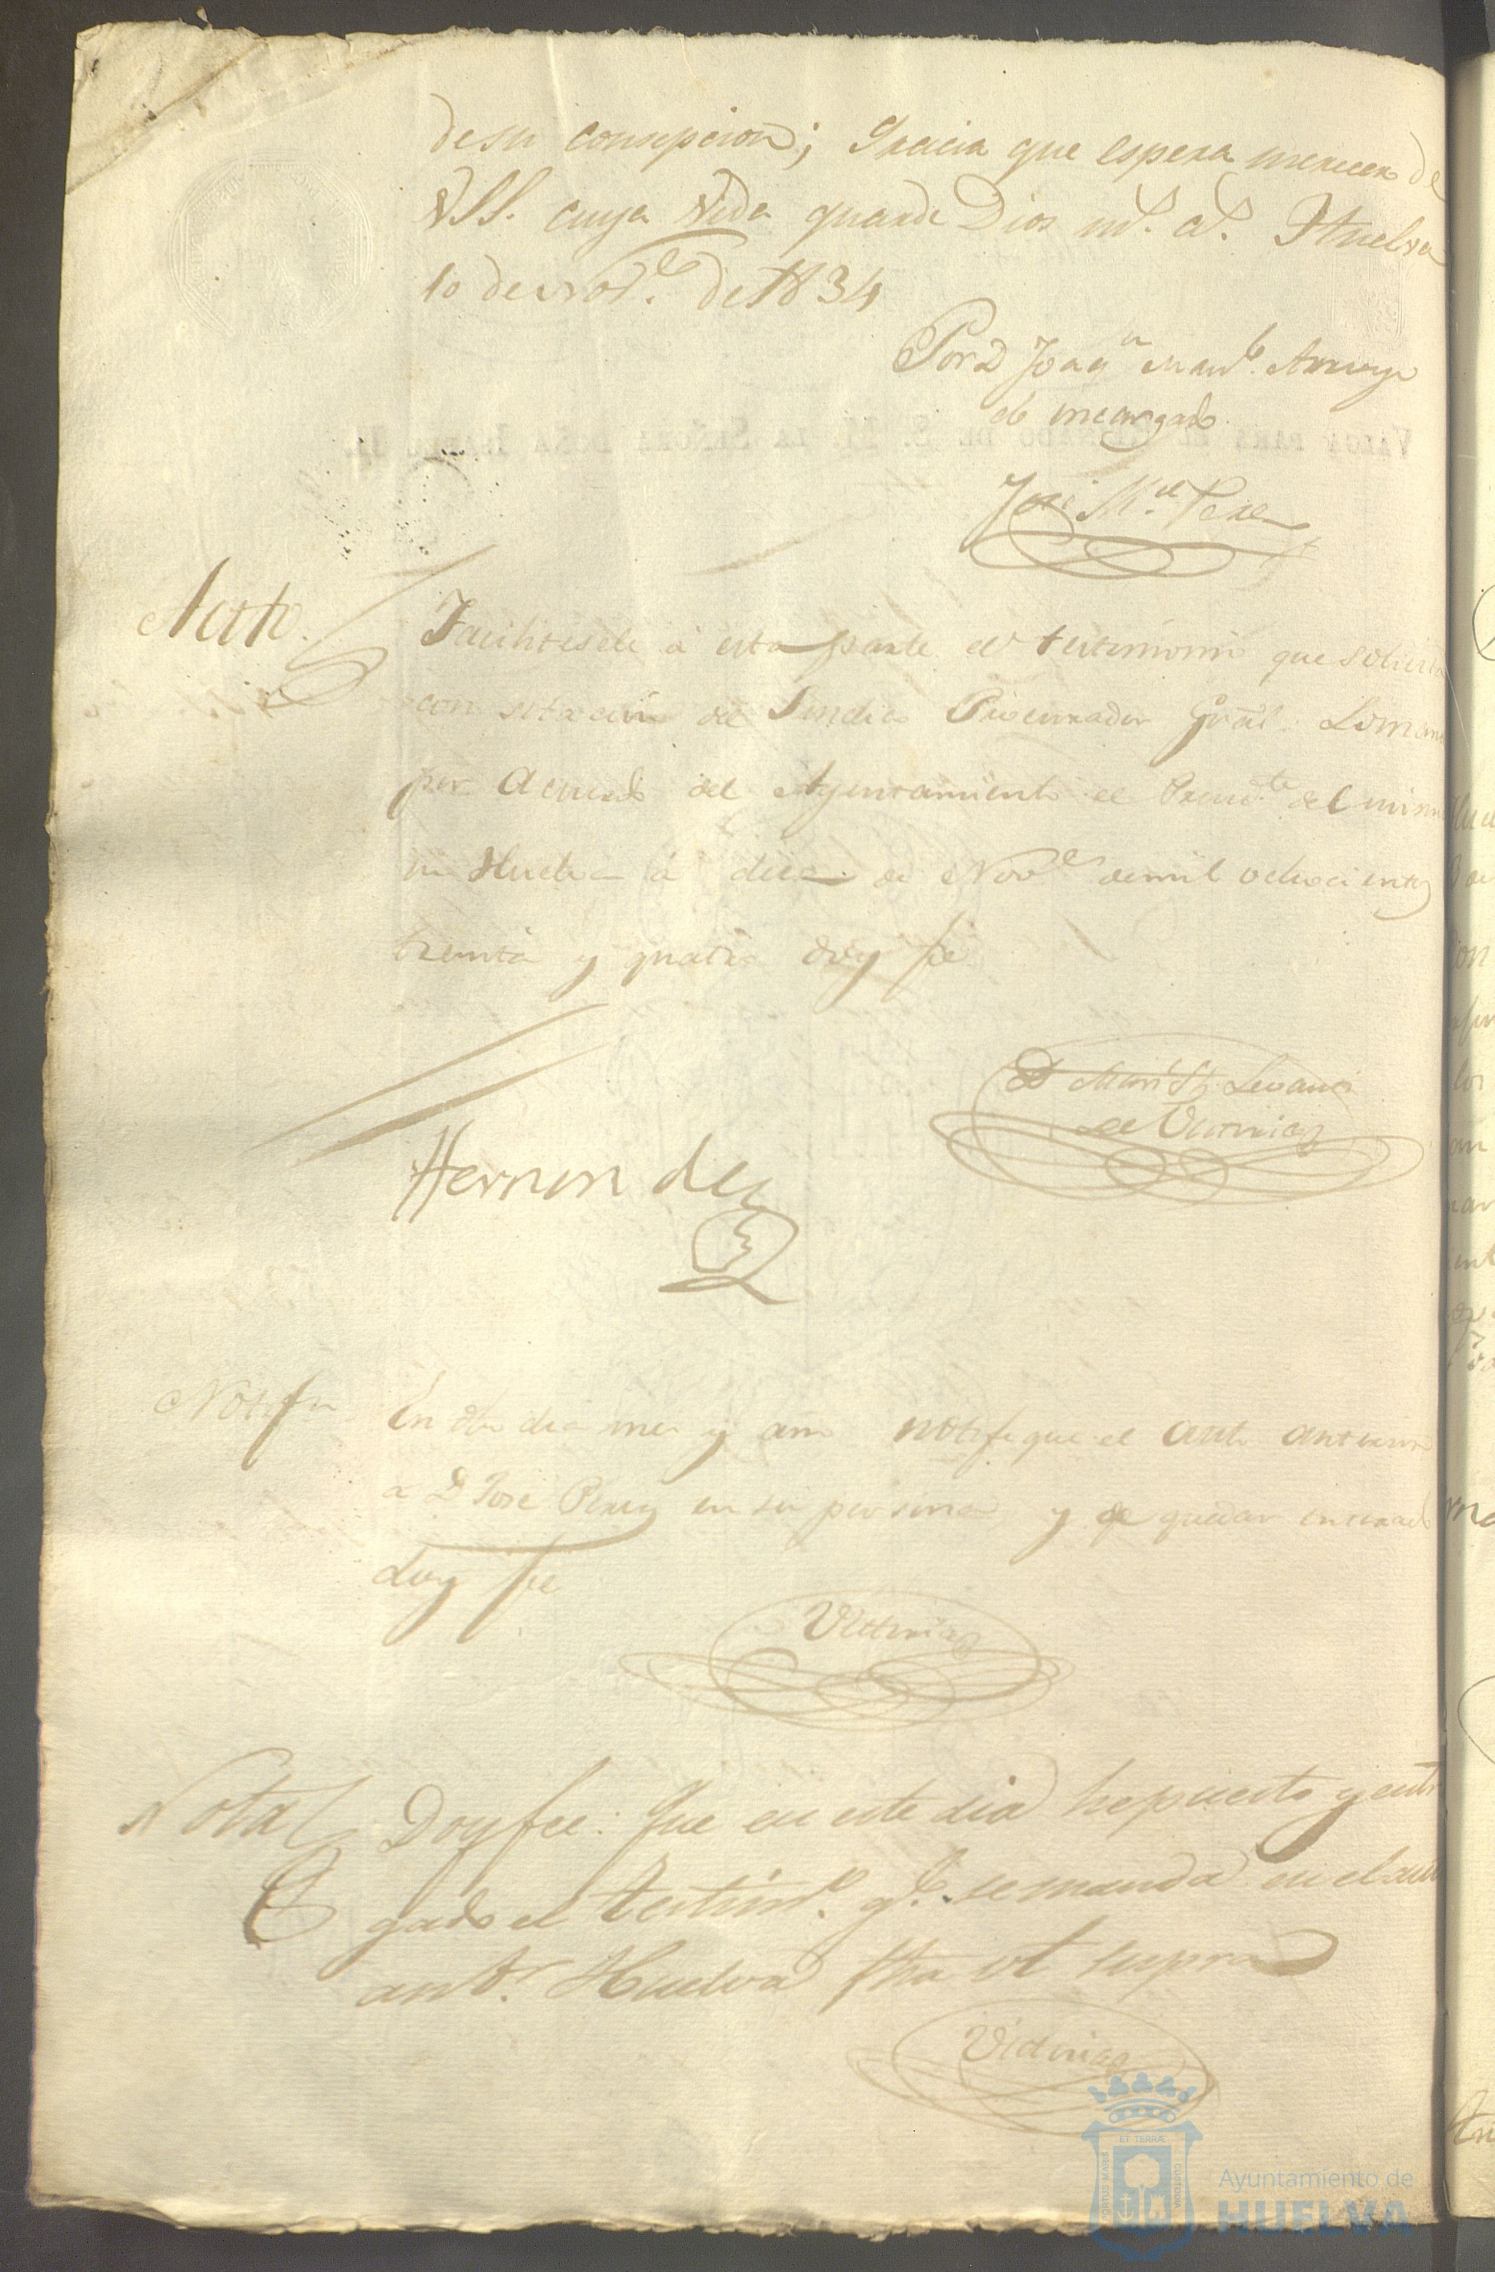 de su consepcion; Gracia que espera merecer de
VSS. cuya Vida guarde Dios ms. as. Huelva
10 de Nobe. de 1834
Por D Joaqn Manl. Arroyo
el encargado
José Ml. Perez
Auto
Facilitesele á esta parte el testimonio que solicita
con sitacion del Sindico Procurador Gral. Lo mandó
por Acuerdo del Ayuntamiento el Presidte. del mismo
en Huelva á diez de Nove de mil ochocientos
treinta y quatro doy fe
de Victoria
Hernandez
Notifn
En dho dia mes y año notifique el auto anterior
a Dn Jose Perez en su persona y de quedar enterado
doy fe
Victoria
Nota
Doy fee: Que en este dia he puesto y entre
gado el testimo. qe. se manda en el auto
antr. Huelva fha ut supra
Victoria
VALGA PARA EL REINADO DE S. M. LA SEÑORA DOÑA ISABEL II.
Ayuntamiento de
HUELVA